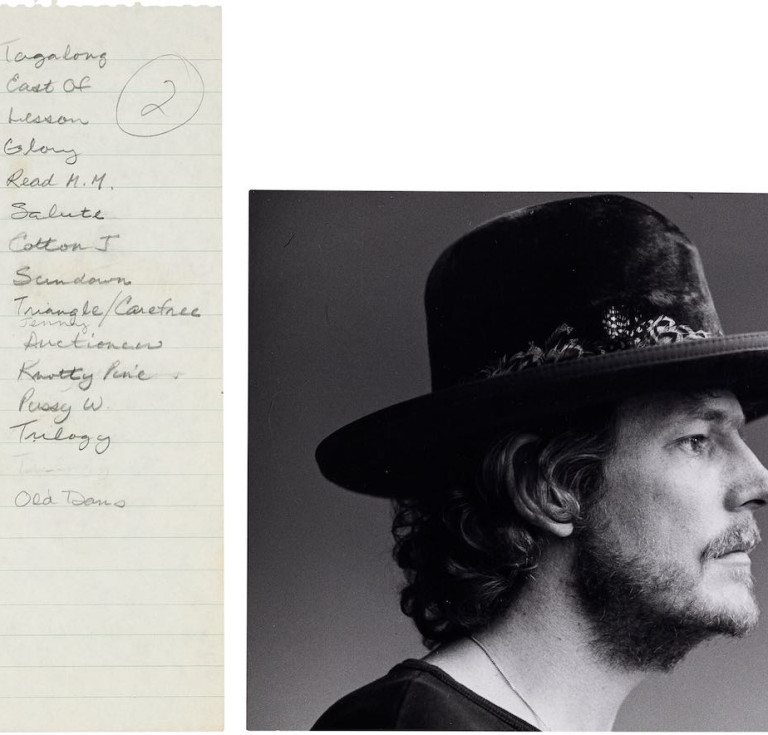 Tagalong
2
East Of
Lesson
Glory
Read M.M.
Salute
Cotton J
Sundown
Triangle/Carefree
Jenney
Auctioneer
Knotty Pine
Pussy W.
Trilogy
Old Dans